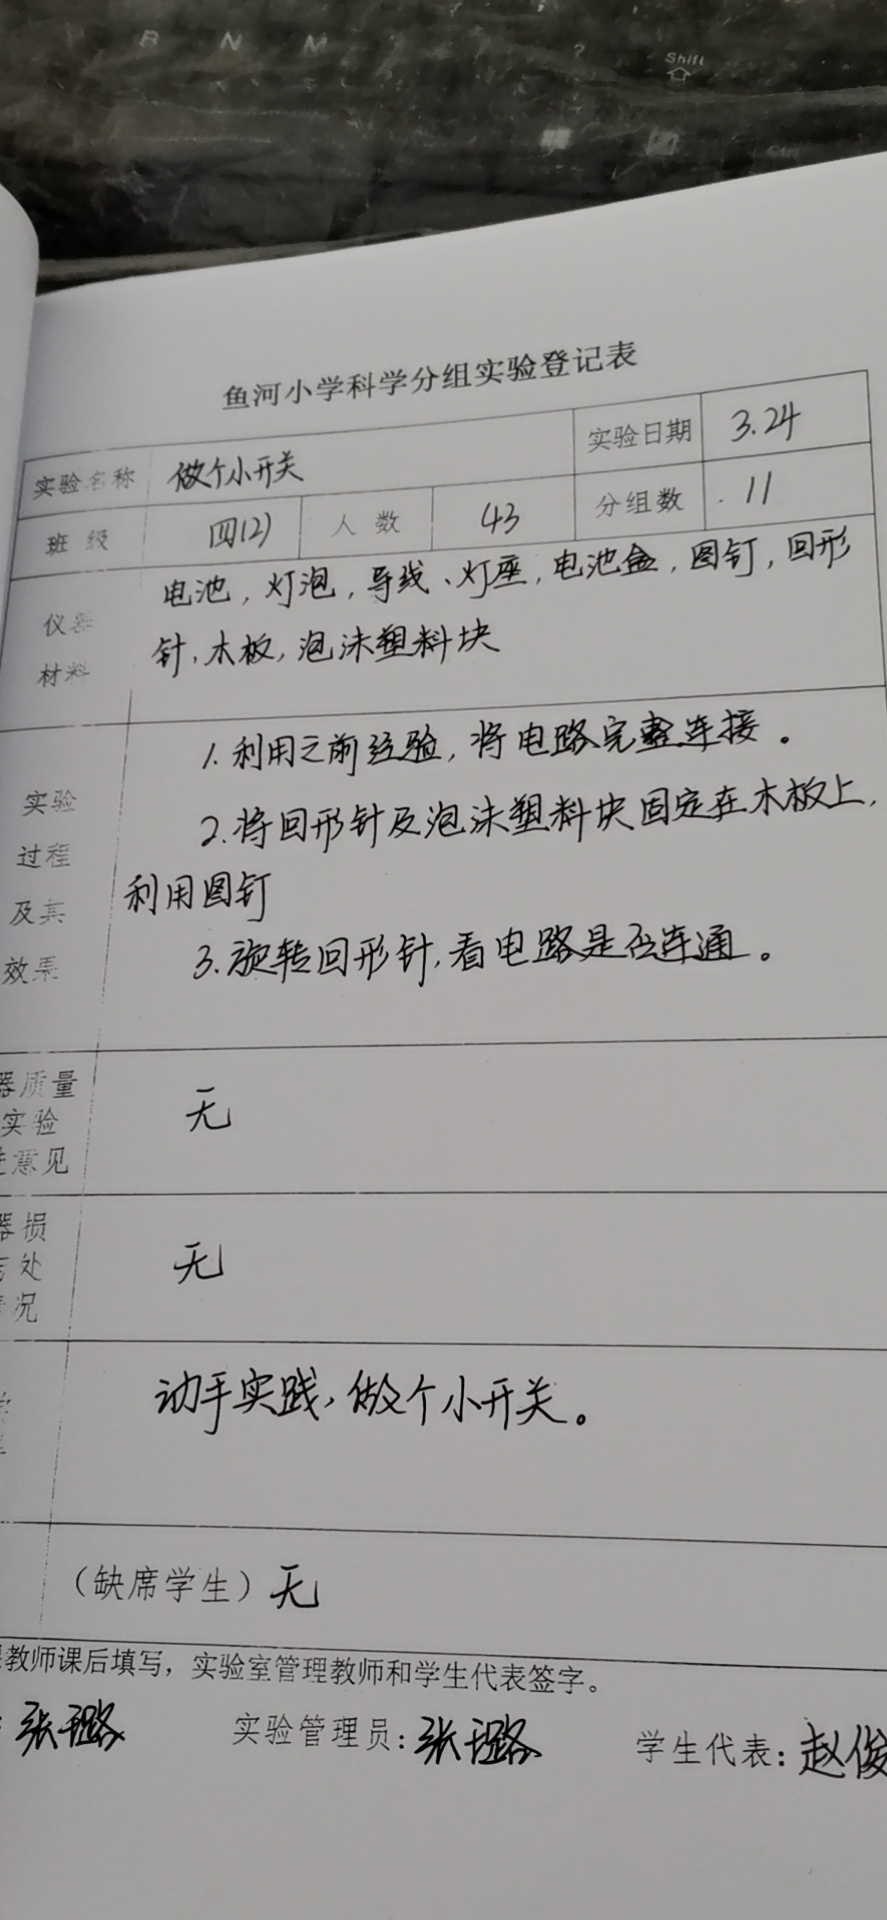 B N M
?
Shift
Ctrl
鱼河小学科学分组实验登记表
实验名称 做个小开关 实验日期 3.24
班级 四(2) 人数 43 分组数 11
仪器
材料
电池,灯泡,导线、灯座,电池盒,图钉,回形
针,木板,泡沫塑料块
实验
过程
及其
效果
1.利用之前经验,将电路完整连接。
2.将回形针及泡沫塑料块固定在木板上,
利用图钉
3.旋转回形针,看电路是否连通。
器质量
实验
意见
无
器损
处
况
无
动手实践,做个小开关。
(缺席学生)无
教师课后填写,实验室管理教师和学生代表签字。
张璐 实验管理员:张璐 学生代表:赵俊